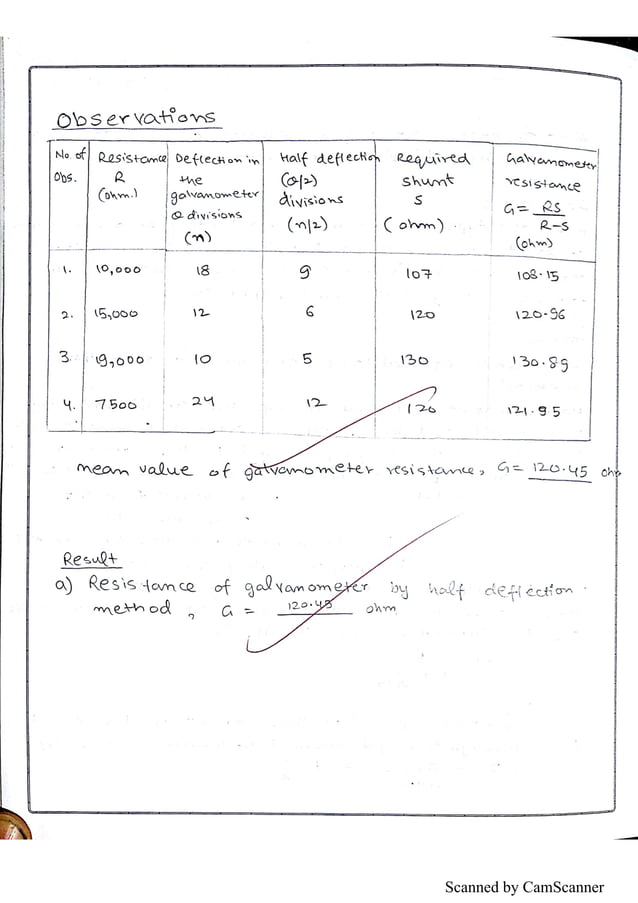 Observations
No. of Obs. | Resistance R (ohm.) | Deflection in the galvanometer θ divisions (n) | Half deflection (θ/2) divisions (n/2) | Required shunt S (ohm) | Galvanometer resistance G = RS/R-S (ohm)
1. | 10,000 | 18 | 9 | 107 | 108.15
2. | 15,000 | 12 | 6 | 120 | 120.96
3. | 19,000 | 10 | 5 | 130 | 130.89
4. | 7500 | 24 | 12 | 120 | 121.95
mean value of galvanometer resistance, G = 120.45 ohm
Result
a) Resistance of galvanometer by half deflection
method, G = 120.45 ohm
Scanned by CamScanner